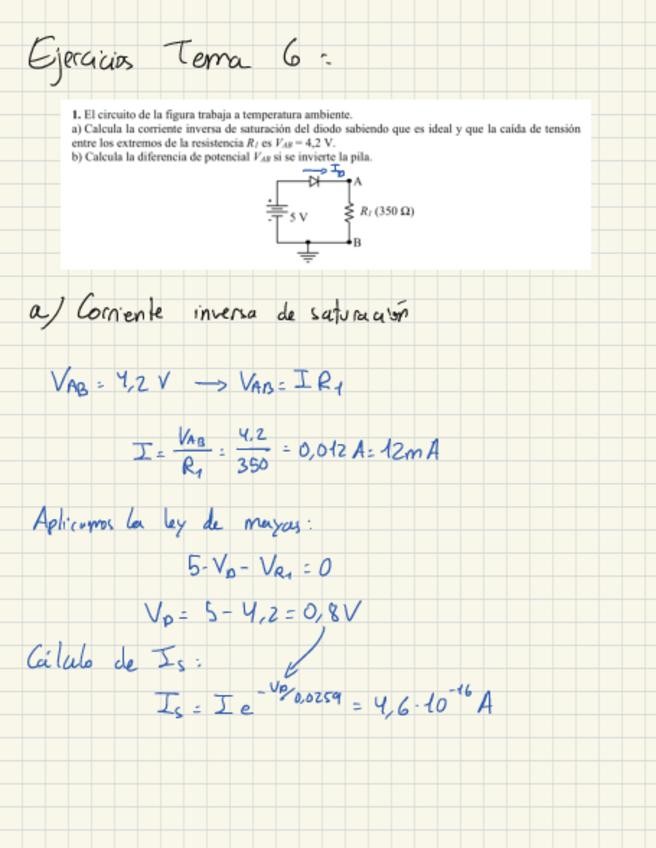 Ejercicios Tema 6:
1. El circuito de la figura trabaja a temperatura ambiente.
a) Calcula la corriente inversa de saturación del diodo sabiendo que es ideal y que la caída de tensión
entre los extremos de la resistencia R₁ es V_AB = 4,2 V.
b) Calcula la diferencia de potencial V_AB si se invierte la pila.
→ I_D
A
5 V
R₁ (350 Ω)
B
a) Corriente inversa de saturación
V_AB = 4,2 V → V_AB = I R₁
I = V_AB/R₁ = 4,2/350 = 0,012 A = 12mA
Aplicamos la ley de mayas:
5-V_D - V_R₁ = 0
V_D = 5 - 4,2 = 0,8V
Cálculo de I_s:
I_s = I e^(-V_D/0,0259) = 4,6·10^-16 A